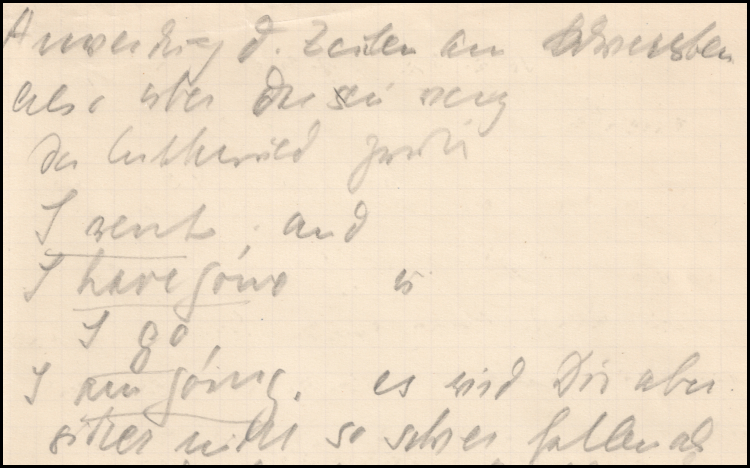 Anwendung d. Zeiten am schwersten
also über die sei weg
der Unterschied zwisch
I went, and
I have gone es
I go
I am going. es wird Dir aber
sicher nicht so schwer fallen als